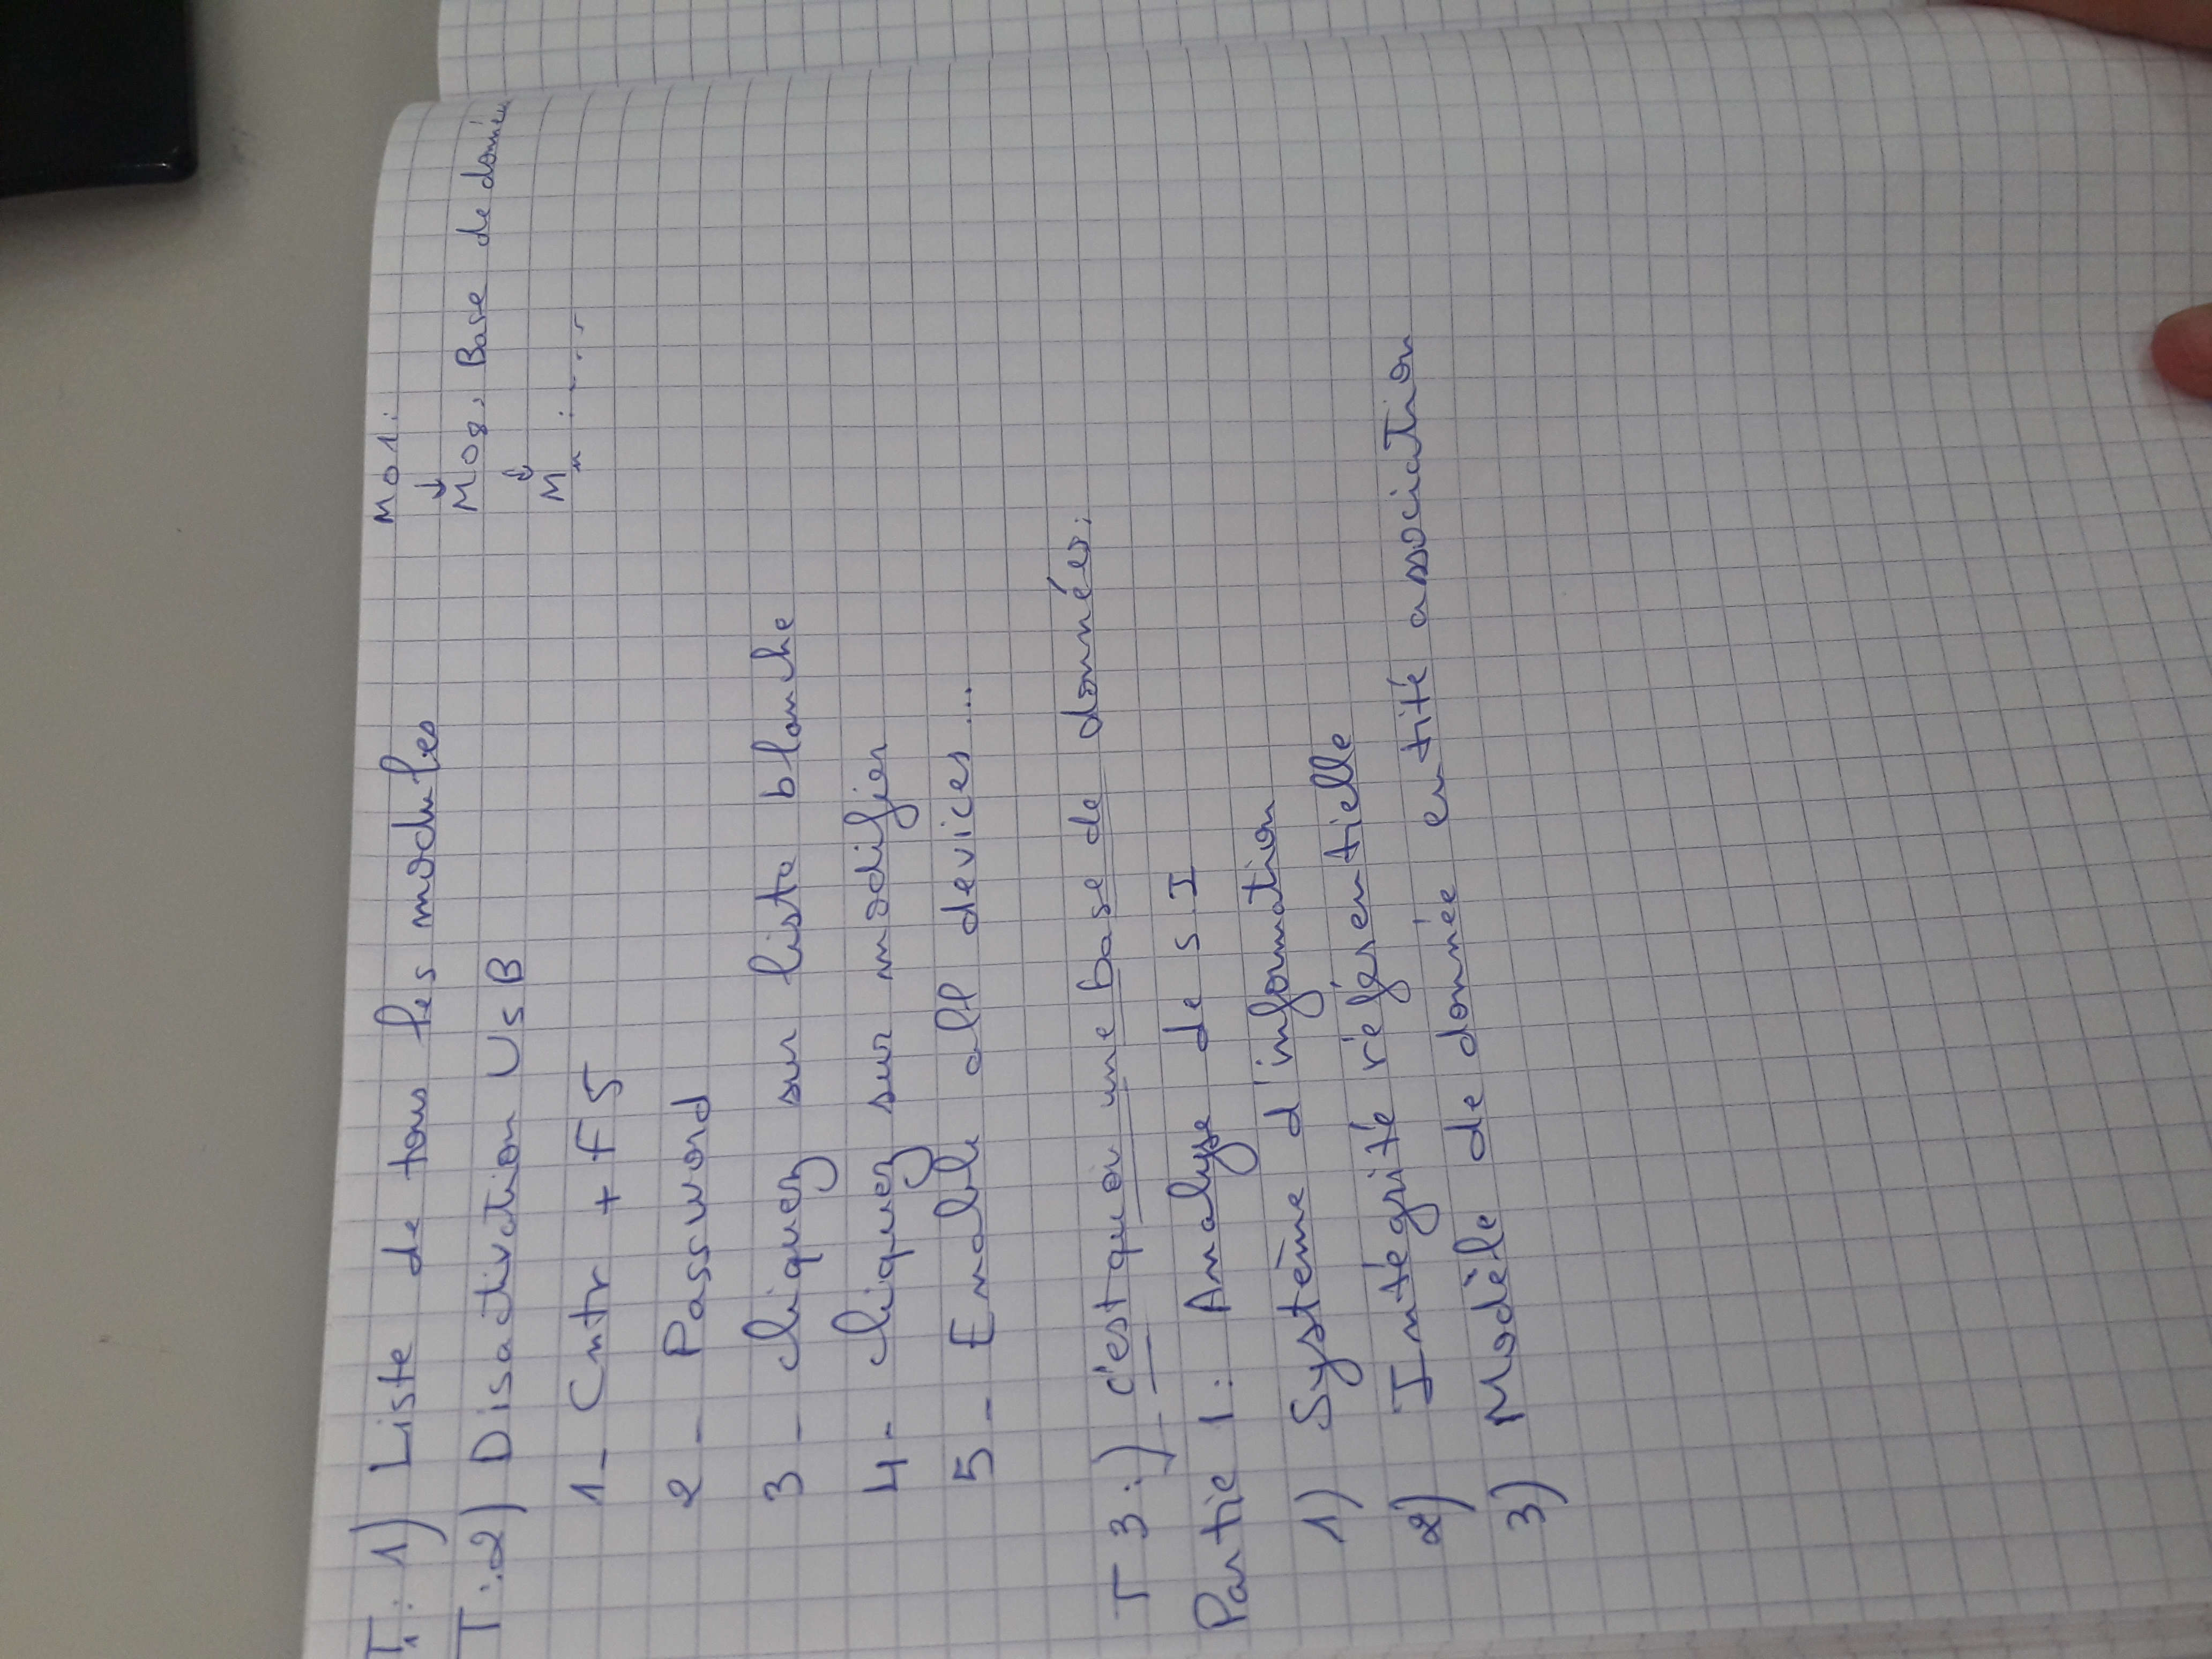 T1: 1) Liste de tous les modules
M01:
↓
M08, Base de donnée
↓
Mn : ....
T:2) Disactivation USB
1- Cntr + F5
2- Password
3- cliquez sur liste blanche
4- cliquez sur modifier
5- Enable all devices...
T3:) c'est quoi une base de données:
Partie 1: Analyse de S.I
1) Système d'information
2) Intégrité référentielle
3) Modèle de donnée entité association